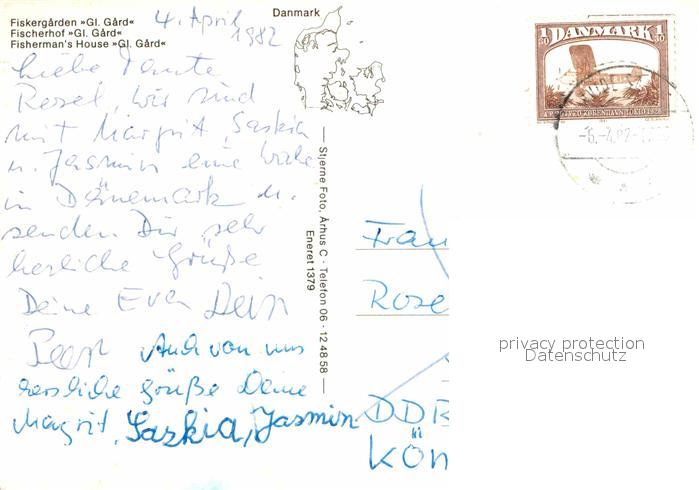 Fiskergården »Gl. Gård«
Fischerhof »Gl. Gård«
Fisherman's House »Gl. Gård«
4. April
1982
Danmark
Liebe Tante
Resel, wir sind
mit Margrit, Saskia
u. Jasmin eine Woche
in Dänemark u.
senden Dir sehr
herzliche Grüße
Deine Eva Dein
Auch von uns
herzliche Grüße Deine
Margrit, Saskia, Jasmin
Stjerne Foto, Århus C · Telefon 06 - 12 48 58
Eneret 1379
1 DANMARK 1
30 30
Frau
Rose
DDR
Kön
privacy protection
Datenschutz